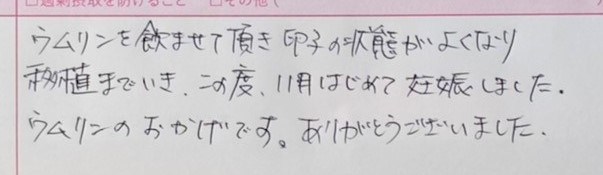 ウムリンを飲ませて頂き卵子の状態がよくなり
移植までいき、この度、11月はじめて妊娠しました。
ウムリンのおかげです。ありがとうございました。